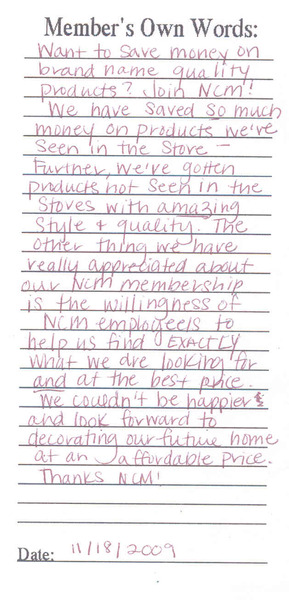 Member's Own Words:
Want to save money on
brand name quality
products? Join NCM!
We have saved so much
money on products we've
seen in the store –
Further, we've gotten
products not seen in the
stores with amazing
style & quality. The
other thing we have
really appreciated about
our NCM membership
is the willingness of
NCM employees to
help us find EXACTLY
what we are looking for
and at the best price.
We couldn't be happier &
and look forward to
decorating our future home
at an affordable price.
Thanks NCM!
Date: 11/18/2009